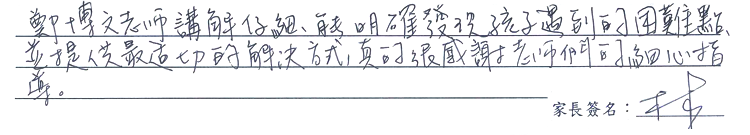 鄭博文老師講解仔細、能明確發現孩子遇到的困難點、
並提供最適切的解決方式,真的很感謝老師們的細心指
導。
家長簽名:林